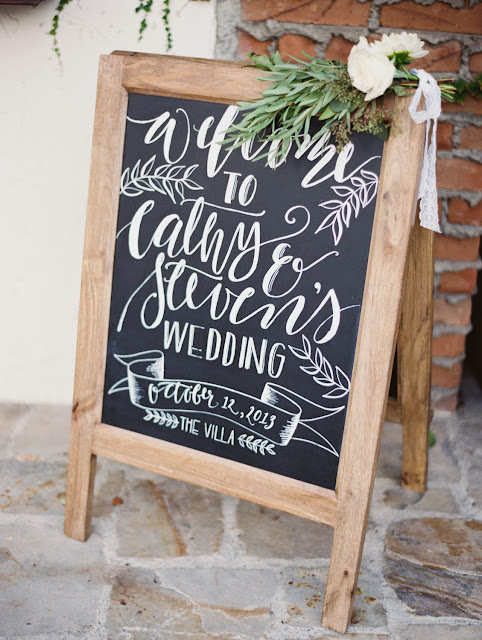 Welcome
TO
Cathy &
Steven's
WEDDING
October 12, 2013
THE VILLA